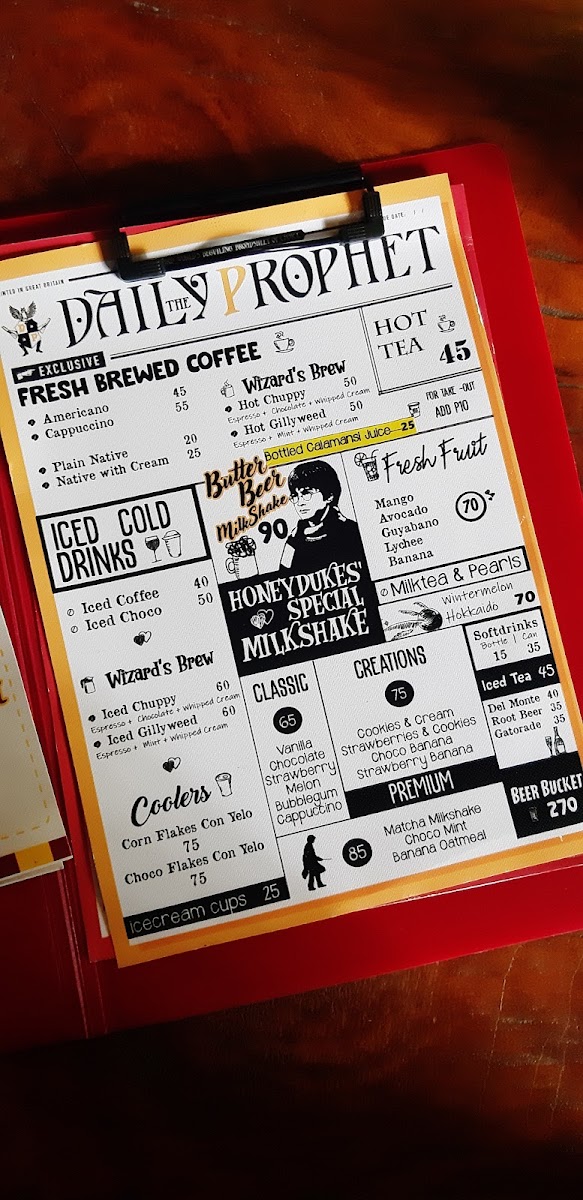 INTED IN GREAT BRITAIN
UE DATE: / /
THE DAILY PROPHET
EXCLUSIVE
FRESH BREWED COFFEE
Americano 45
Cappuccino 55
Plain Native 20
Native with Cream 25
Wizard's Brew
Hot Chuppy 50
Espresso + Chocolate + Whipped Cream
Hot Gillyweed 50
Espresso + Mint + Whipped Cream
HOT
TEA 45
FOR TAKE-OUT
ADD P10
Bottled Calamansi Juice---25
ICED COLD
DRINKS
Iced Coffee 40
Iced Choco 50
Wizard's Brew
Iced Chuppy 60
Espresso + Chocolate + Whipped Cream
Iced Gillyweed 60
Espresso + Mint + Whipped Cream
Coolers
Corn Flakes Con Yelo
75
Choco Flakes Con Yelo
75
icecream cups 25
Butter
Beer
MilkShake
90
HONEYDUKES'
SPECIAL
MILKSHAKE
Fresh Fruit
Mango
Avocado
Guyabano
Lychee
Banana
70
Milktea & Pearls
Wintermelon
Hokkaido 70
CLASSIC
65
Vanilla
Chocolate
Strawberry
Melon
Bubblegum
Cappuccino
CREATIONS
75
Cookies & Cream
Strawberries & Cookies
Choco Banana
Strawberry Banana
PREMIUM
85
Matcha Milkshake
Choco Mint
Banana Oatmeal
Softdrinks
Bottle | Can
15 35
Iced Tea 45
Del Monte 40
Root Beer 35
Gatorade 35
BEER BUCKET
270